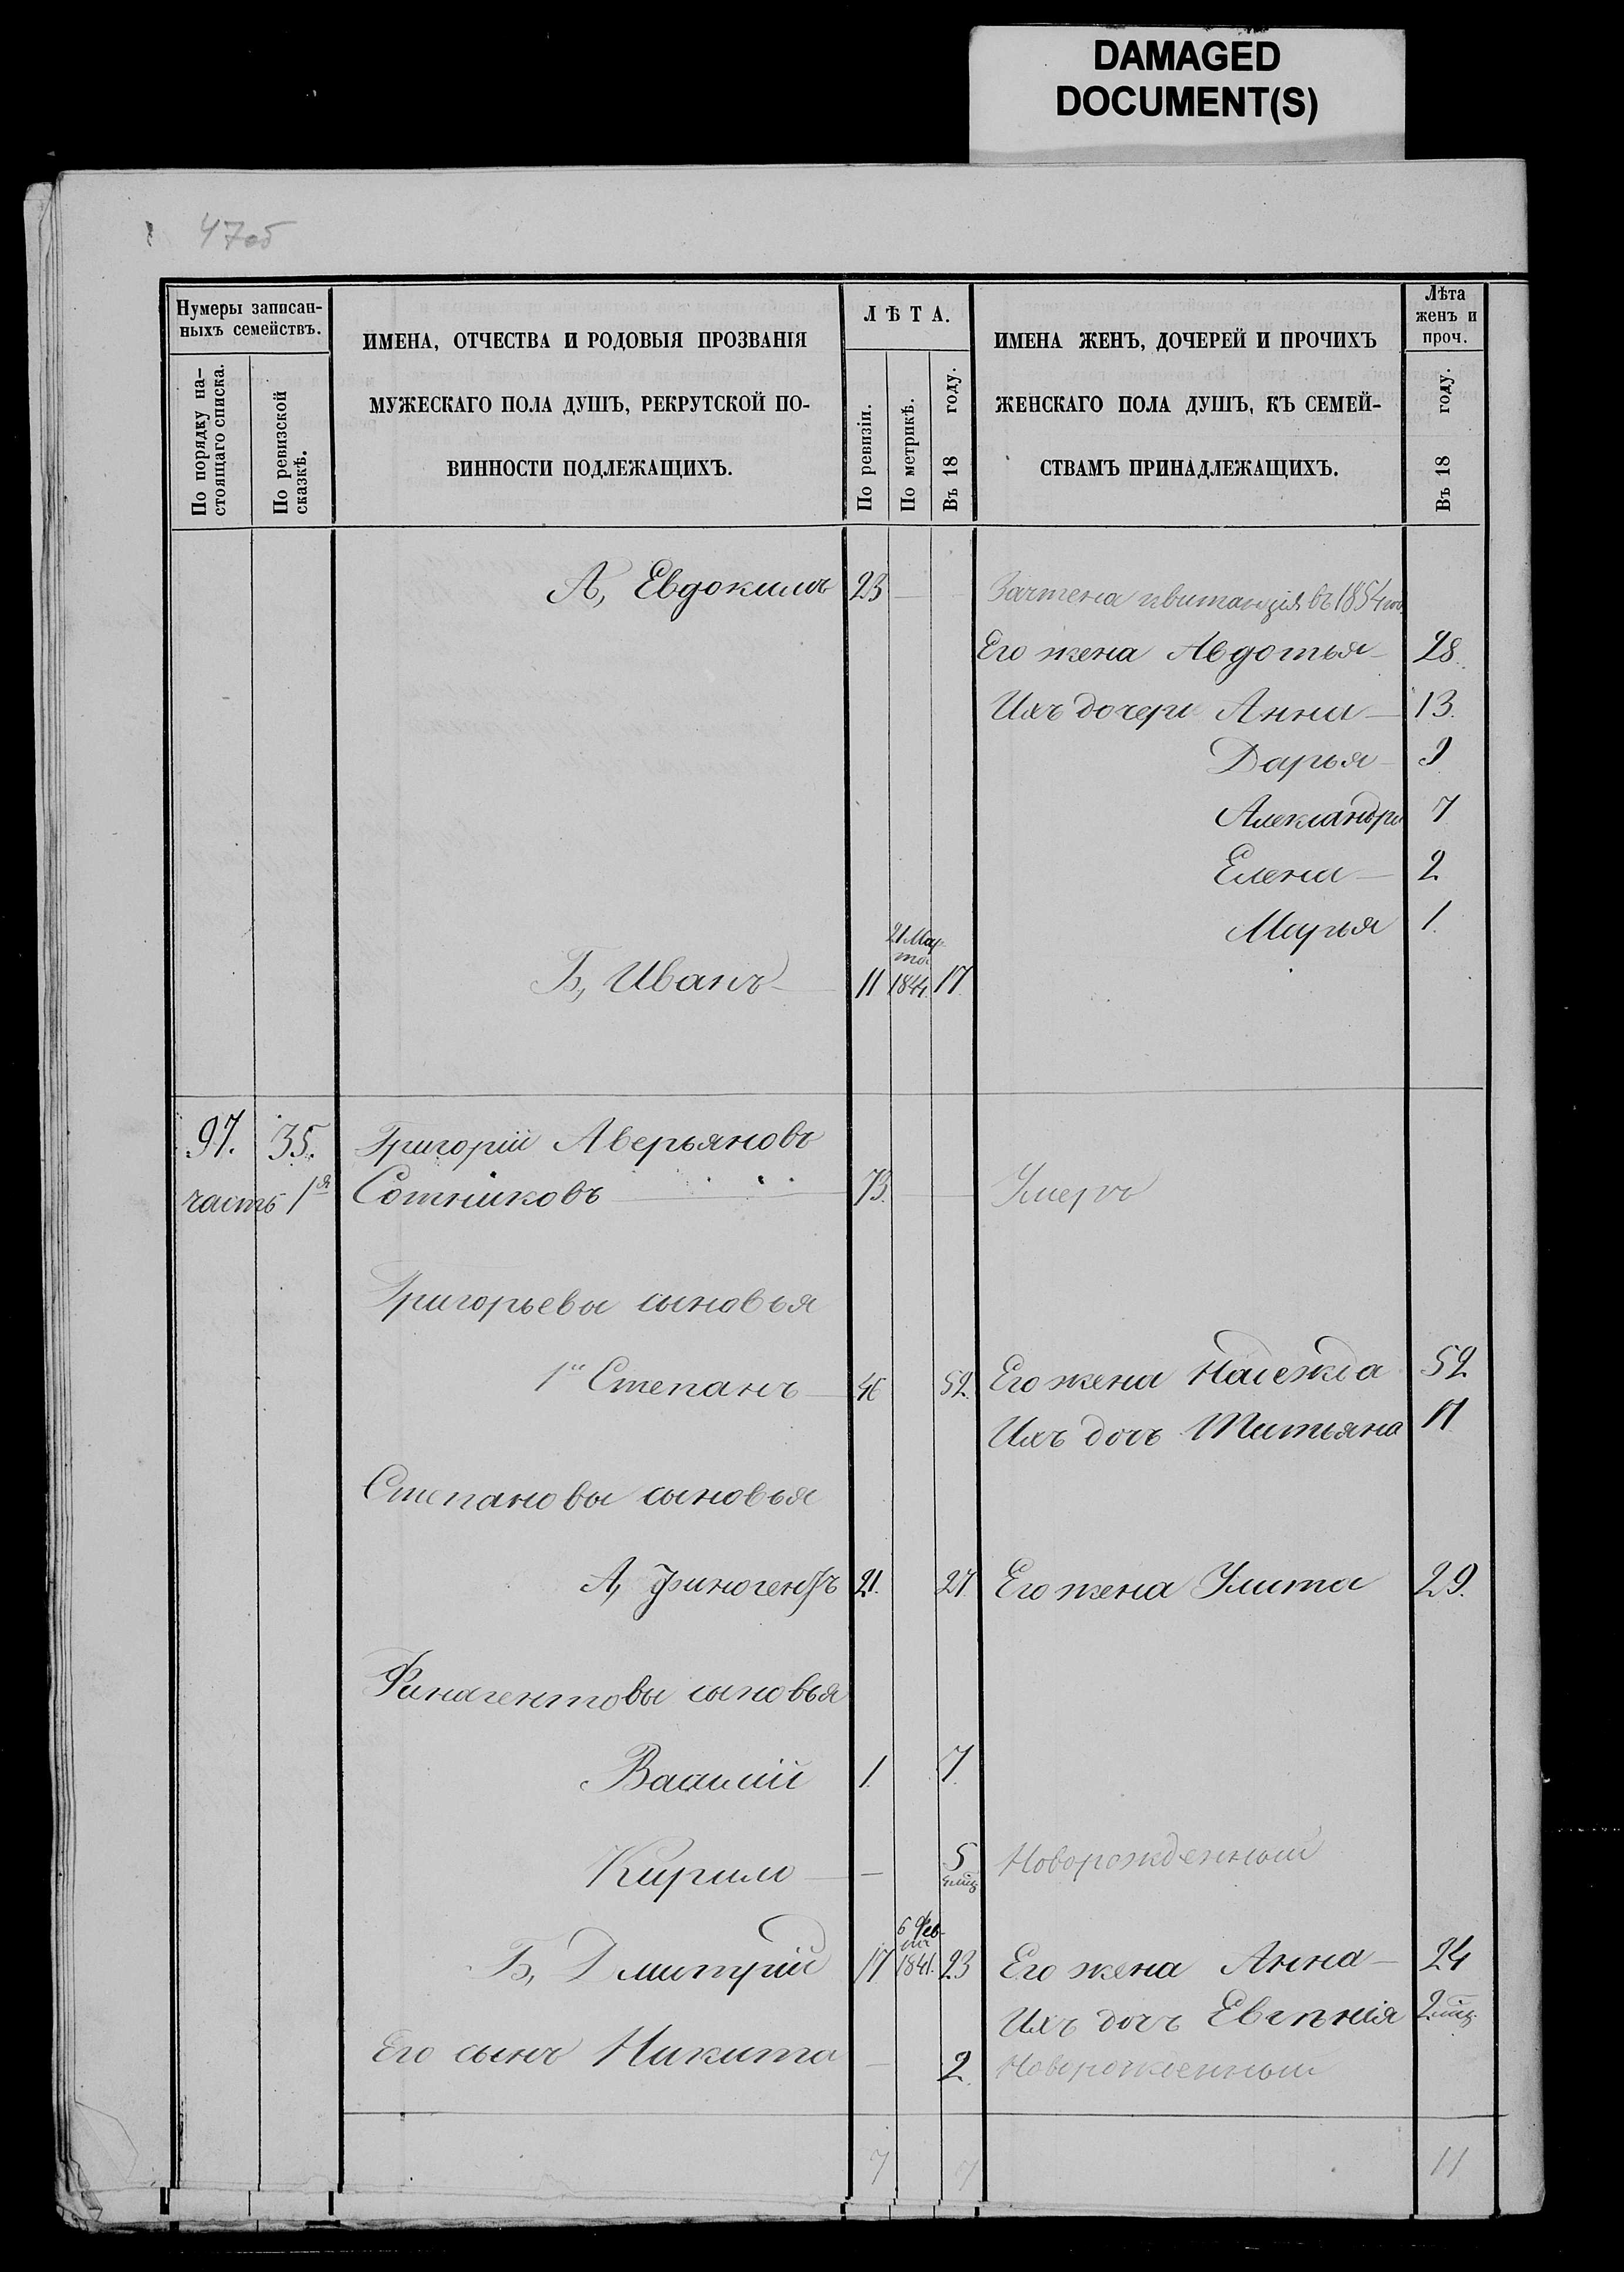 DAMAGED
DOCUMENT(S)
47об
Нумеры записан-
ныхъ семействъ.
По порядку на-
стоящаго списка.
По ревизской
сказкѣ.
ИМЕНА, ОТЧЕСТВА И РОДОВЫЯ ПРОЗВАНІЯ
МУЖЕСКАГО ПОЛА ДУШЪ, РЕКРУТСКОЙ ПО-
ВИННОСТИ ПОДЛЕЖАЩИХЪ.
ЛѢТА.
По ревизіи.
По метрикѣ.
Въ 18 году.
ИМЕНА ЖЕНЪ, ДОЧЕРЕЙ И ПРОЧИХЪ
ЖЕНСКАГО ПОЛА ДУШЪ, КЪ СЕМЕЙ-
СТВАМЪ ПРИНАДЛЕЖАЩИХЪ.
Лѣта
женъ и
проч.
Въ 18 году.
А, Евдокимъ 23 Зачтена квитанція въ 1854
Его жена Авдотья 28.
Ихъ дочери Анна 13.
Дарья 9
Александра 7
Елена 2
Марья 1.
21 Мар-
та
Б, Иванъ 11 1844. 17.
97. 35. Григорій Аверьяновъ
часть 1я Сотниковъ 73. Умеръ
Григорьевы сыновья
1й Степанъ 46 52. Его жена Надежда 52
Ихъ дочь Татьяна 17
Степановы сыновья
А, Финогентъ 21. 27. Его жена Улита 29.
Финагентовы сыновья
Василій 1. 7.
Кирило — 5 Новорожденный
6 Фев-
Б, Дмитрій 17 1841. 23 Его жена Анна 24
Ихъ дочь Евгенія 2 мѣц.
Его сынъ Никита — 2. Новорожденный
7 7 11